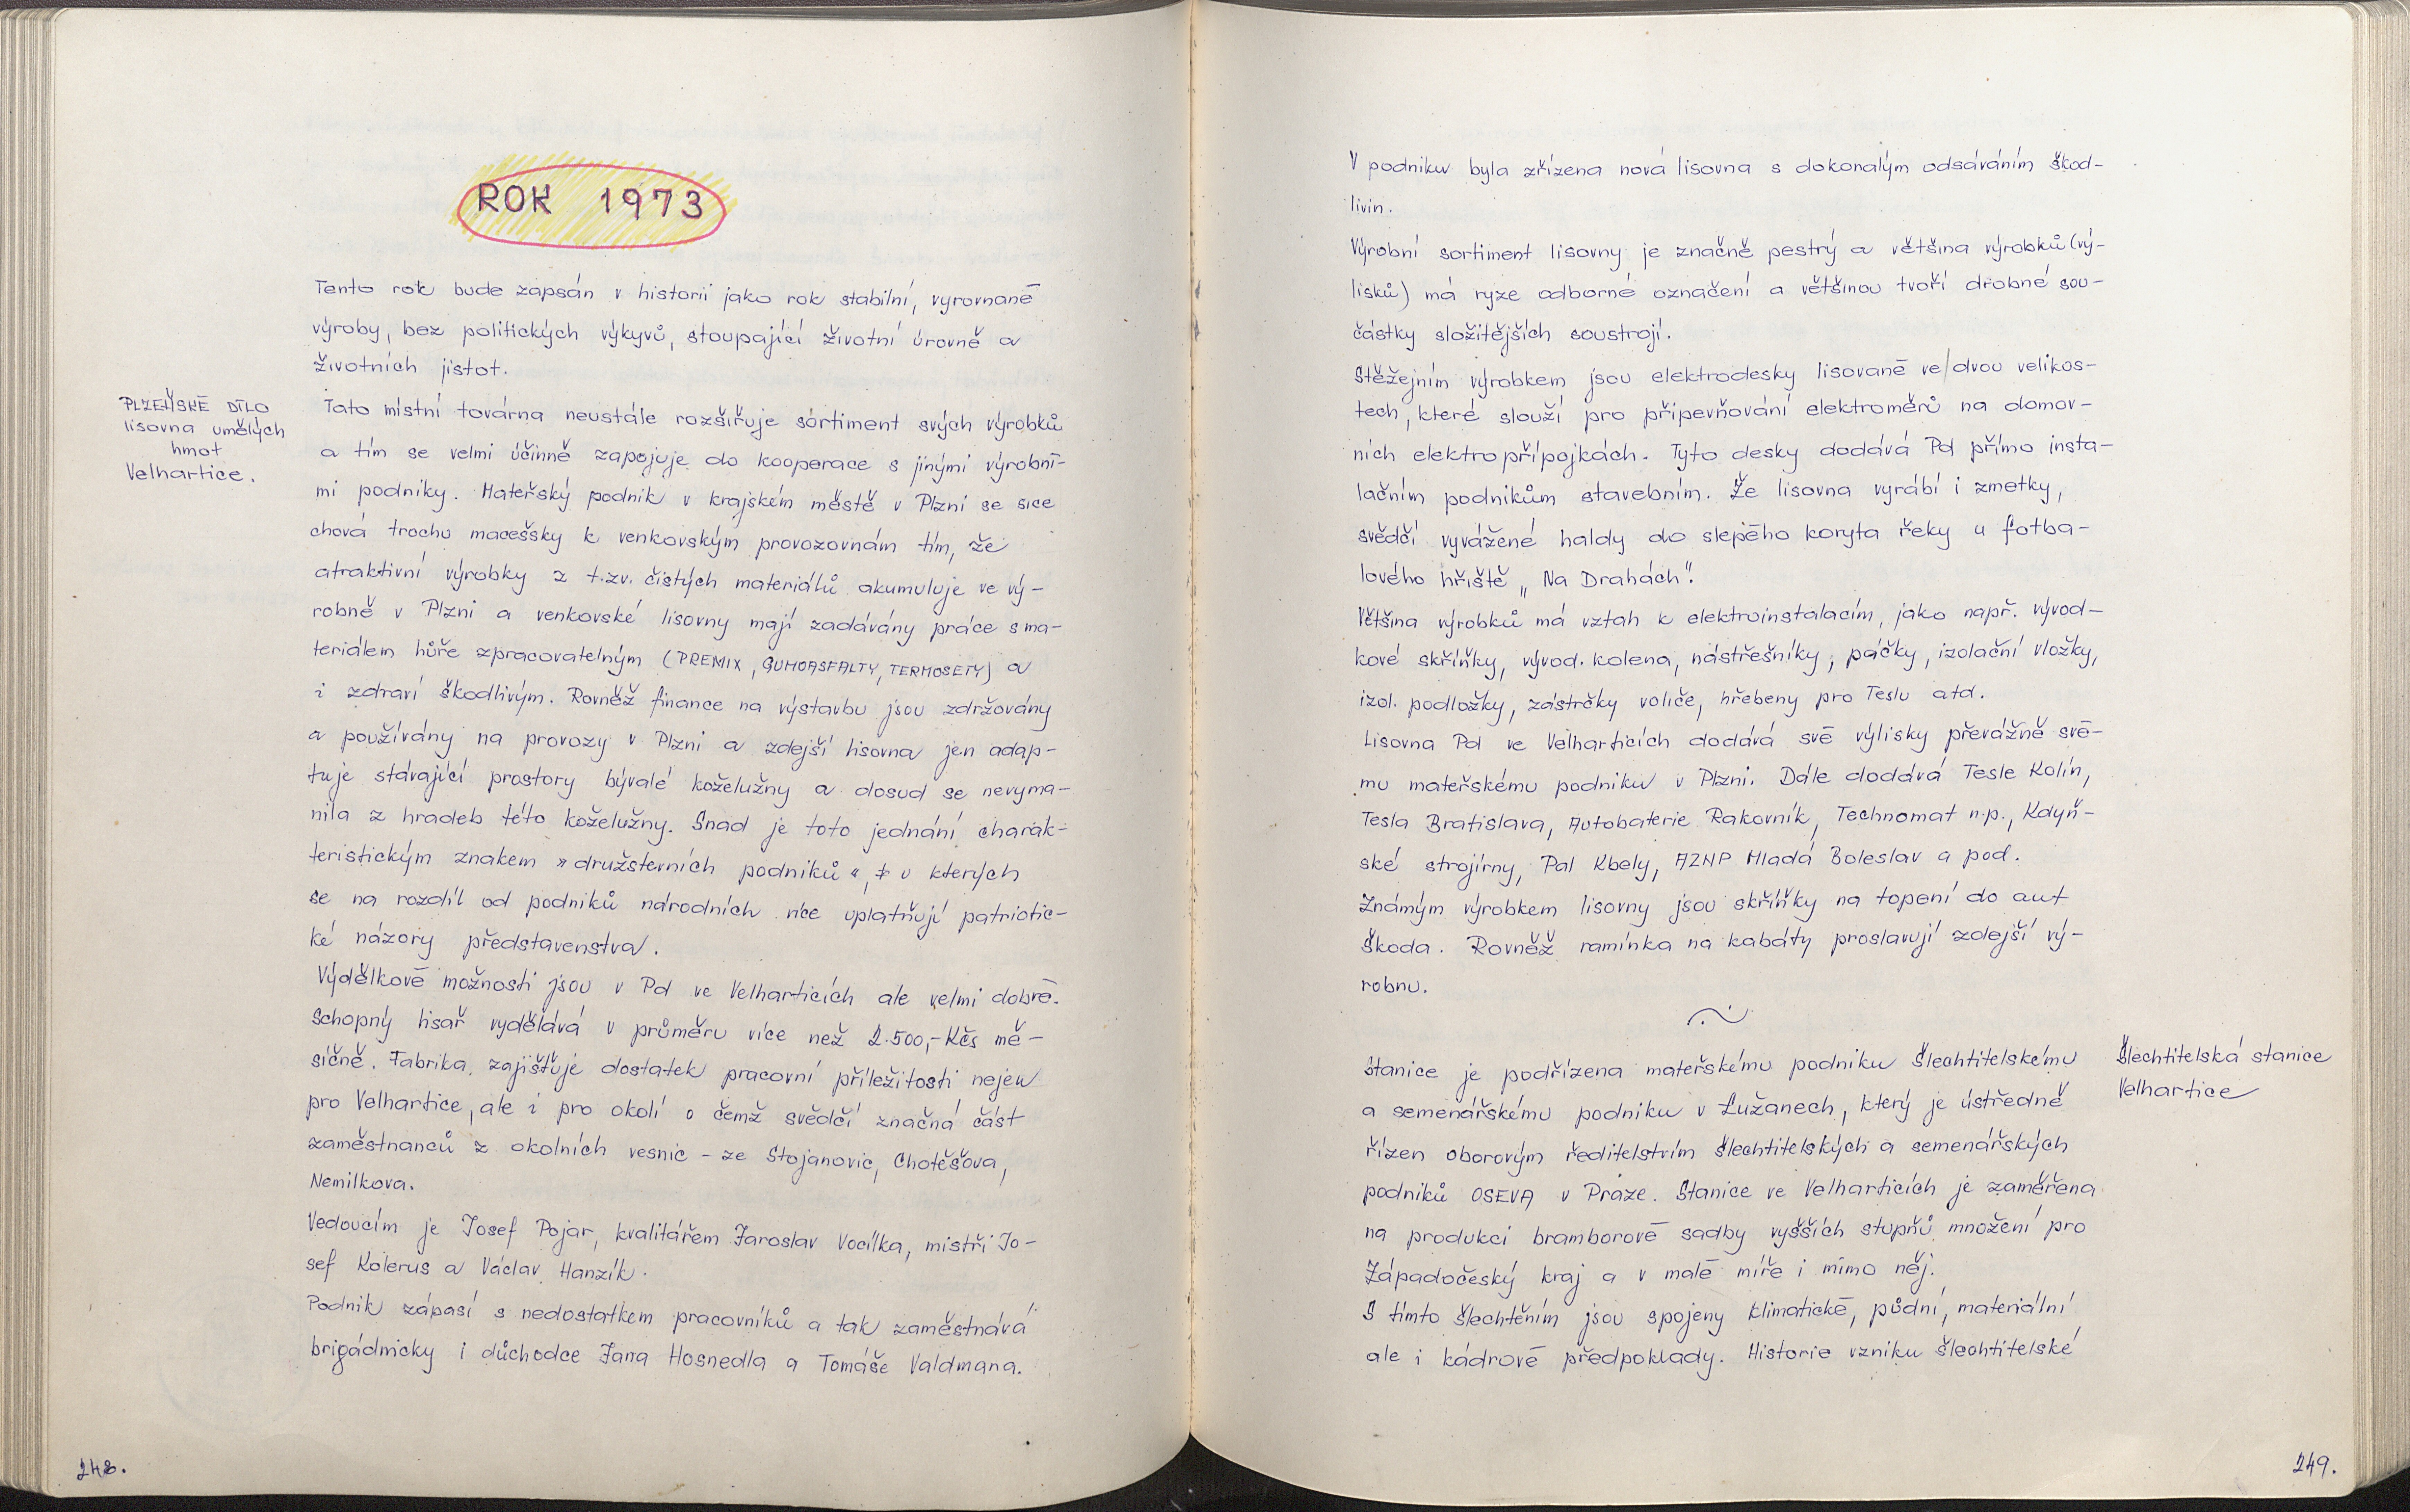 ROK 1973
Tento rok bude zapsán v historii jako rok stabilní, vyrovnané
výroby, bez politických výkyvů, stoupající životní úrovně a
životních jistot.
PLZEŇSKÉ DÍLO
lisovna umělých
hmot
Velhartice.
Tato místní továrna neustále rozšiřuje sortiment svých výrobků
a tím se velmi účinně zapojuje do kooperace s jinými výrobní-
mi podniky. Mateřský podnik v krajském městě v Plzni se sice
chová trochu macešsky k venkovským provozovnám tím, že
atraktivní výrobky z t.zv. čistých materiálů akumuluje ve vý-
robně v Plzni a venkovské lisovny mají zadávány práce s ma-
teriálem hůře zpracovatelným (PREMIX, GUMOASFALTY, TERMOSETY) a
i zdraví škodlivým. Rovněž finance na výstavbu jsou zdržovány
a používány na provozy v Plzni a zdejší lisovna jen adap-
tuje stávající prostory bývalé koželužny a dosud se nevyma-
nila z hradeb této koželužny. Snad je toto jednání charak-
teristickým znakem "družstevních podniků", v kterých
se na rozdíl od podniků národních více uplatňují patriotic-
ké názory představenstva.
Výdělkové možnosti jsou v Pd ve Velharticích ale velmi dobré.
Schopný lisař vydělává v průměru více než 2.500,- Kčs mě-
síčně. Fabrika zajišťuje dostatek pracovní příležitosti nejen
pro Velhartice, ale i pro okolí o čemž svědčí značná část
zaměstnanců z okolních vesnic - ze Stojanovic, Chotěšova,
Nemilkova.
Vedoucím je Josef Pojar, kvalitářem Jaroslav Vocílka, mistři Jo-
sef Kolerus a Václav Hanzík.
Podnik zápasí s nedostatkem pracovníků a tak zaměstnává
brigádnicky i důchodce Jana Hosnedla a Tomáše Valdmana.
248.
V podniku byla zřízena nová lisovna s dokonalým odsáváním škod-
livin.
Výrobní sortiment lisovny je značně pestrý a většina výrobků (vý-
lisků) má ryze odborné označení a většinou tvoří drobné sou-
částky složitějších soustrojí.
Stěžejním výrobkem jsou elektrodesky lisované ve dvou velikos-
tech, které slouží pro připevňování elektroměrů na domov-
ních elektropřípojkách. Tyto desky dodává Pd přímo insta-
lačním podnikům stavebním. Že lisovna vyrábí i zmetky,
svědčí vyvážené haldy do slepého koryta řeky u fotba-
lového hřiště „Na Drahách".
Většina výrobků má vztah k elektroinstalacím, jako např. vývod-
kové skříňky, vývod. kolena, nástřešníky, páčky, izolační vložky,
izol. podložky, zástrčky voliče, hřebeny pro Teslu atd.
Lisovna Pd ve Velharticích dodává své výlisky převážně své-
mu mateřskému podniku v Plzni. Dále dodává Tesle Kolín,
Tesla Bratislava, Autobaterie Rakovník, Technomat n.p., Kdyň-
ské strojírny, Pal Kbely, AZNP Mladá Boleslav a pod.
Známým výrobkem lisovny jsou skříňky na topení do aut
Škoda. Rovněž ramínka na kabáty proslavují zdejší vý-
robnu.
Šlechtitelská stanice
Velhartice
Stanice je podřízena mateřskému podniku Šlechtitelskému
a semenářskému podniku v Lužanech, který je ústředně
řízen oborovým ředitelstvím šlechtitelských a semenářských
podniků OSEVA v Praze. Stanice ve Velharticích je zaměřena
na produkci bramborové sadby vyšších stupňů množení pro
Západočeský kraj a v malé míře i mimo něj.
S tímto šlechtěním jsou spojeny klimatické, půdní, materiální
ale i kádrové předpoklady. Historie vzniku šlechtitelské
249.